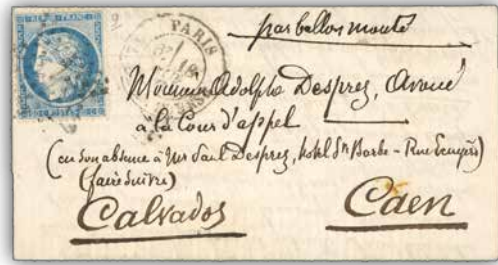 REPUB. FRANC.
PARIS
18
par ballon monté
Monsieur Adolphe Desprez, Avoué
à la Cour d'appel
(en son absence à Mr Paul Desprez, hotel Ste Barbe - Rue Ecuyère)
(faire suivre)
Calvados
Caen